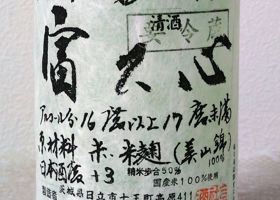 清酒
要冷蔵
富久心
アルコール分16度以上17度未満
原材料 米、米麹(美山錦100%)
日本酒度 +3 精米歩合50%
国産米100%使用
製造者
茨城県日立市十王町高原411